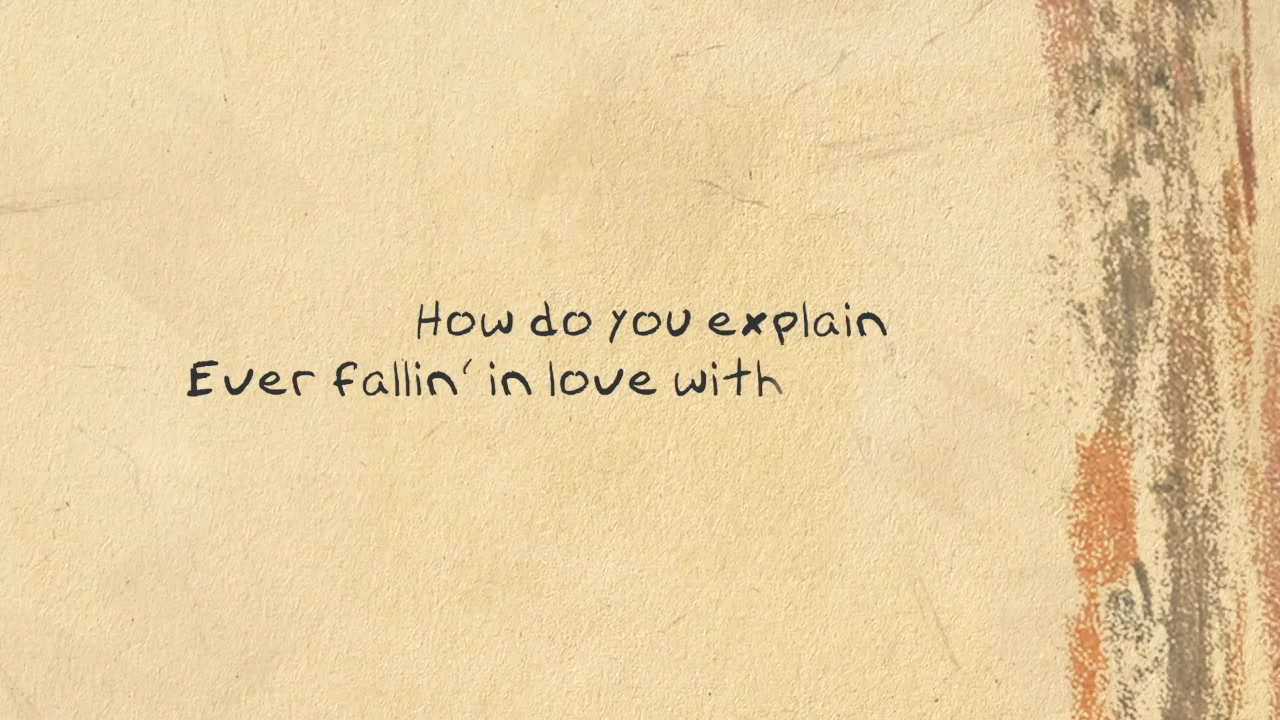 How do you explain
Ever fallin' in love with